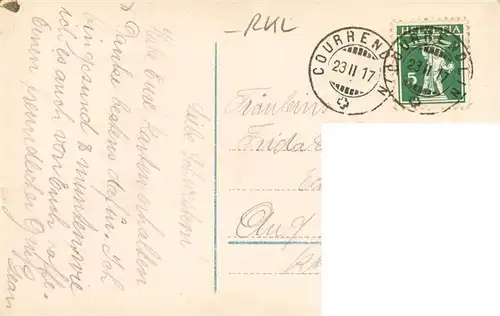 RKL
COURRENDLIN
23 II 17
HELVETIA
5
COURRENDLIN
23 II 17
Liebe Schwestern!
Habe Eure Karten erhalten
Danke bestens dafür. Ich
bin gesund & munter wie
ich es auch von Euch hoffe.
Einen freundlichen Gruß
Fräulein
Frida